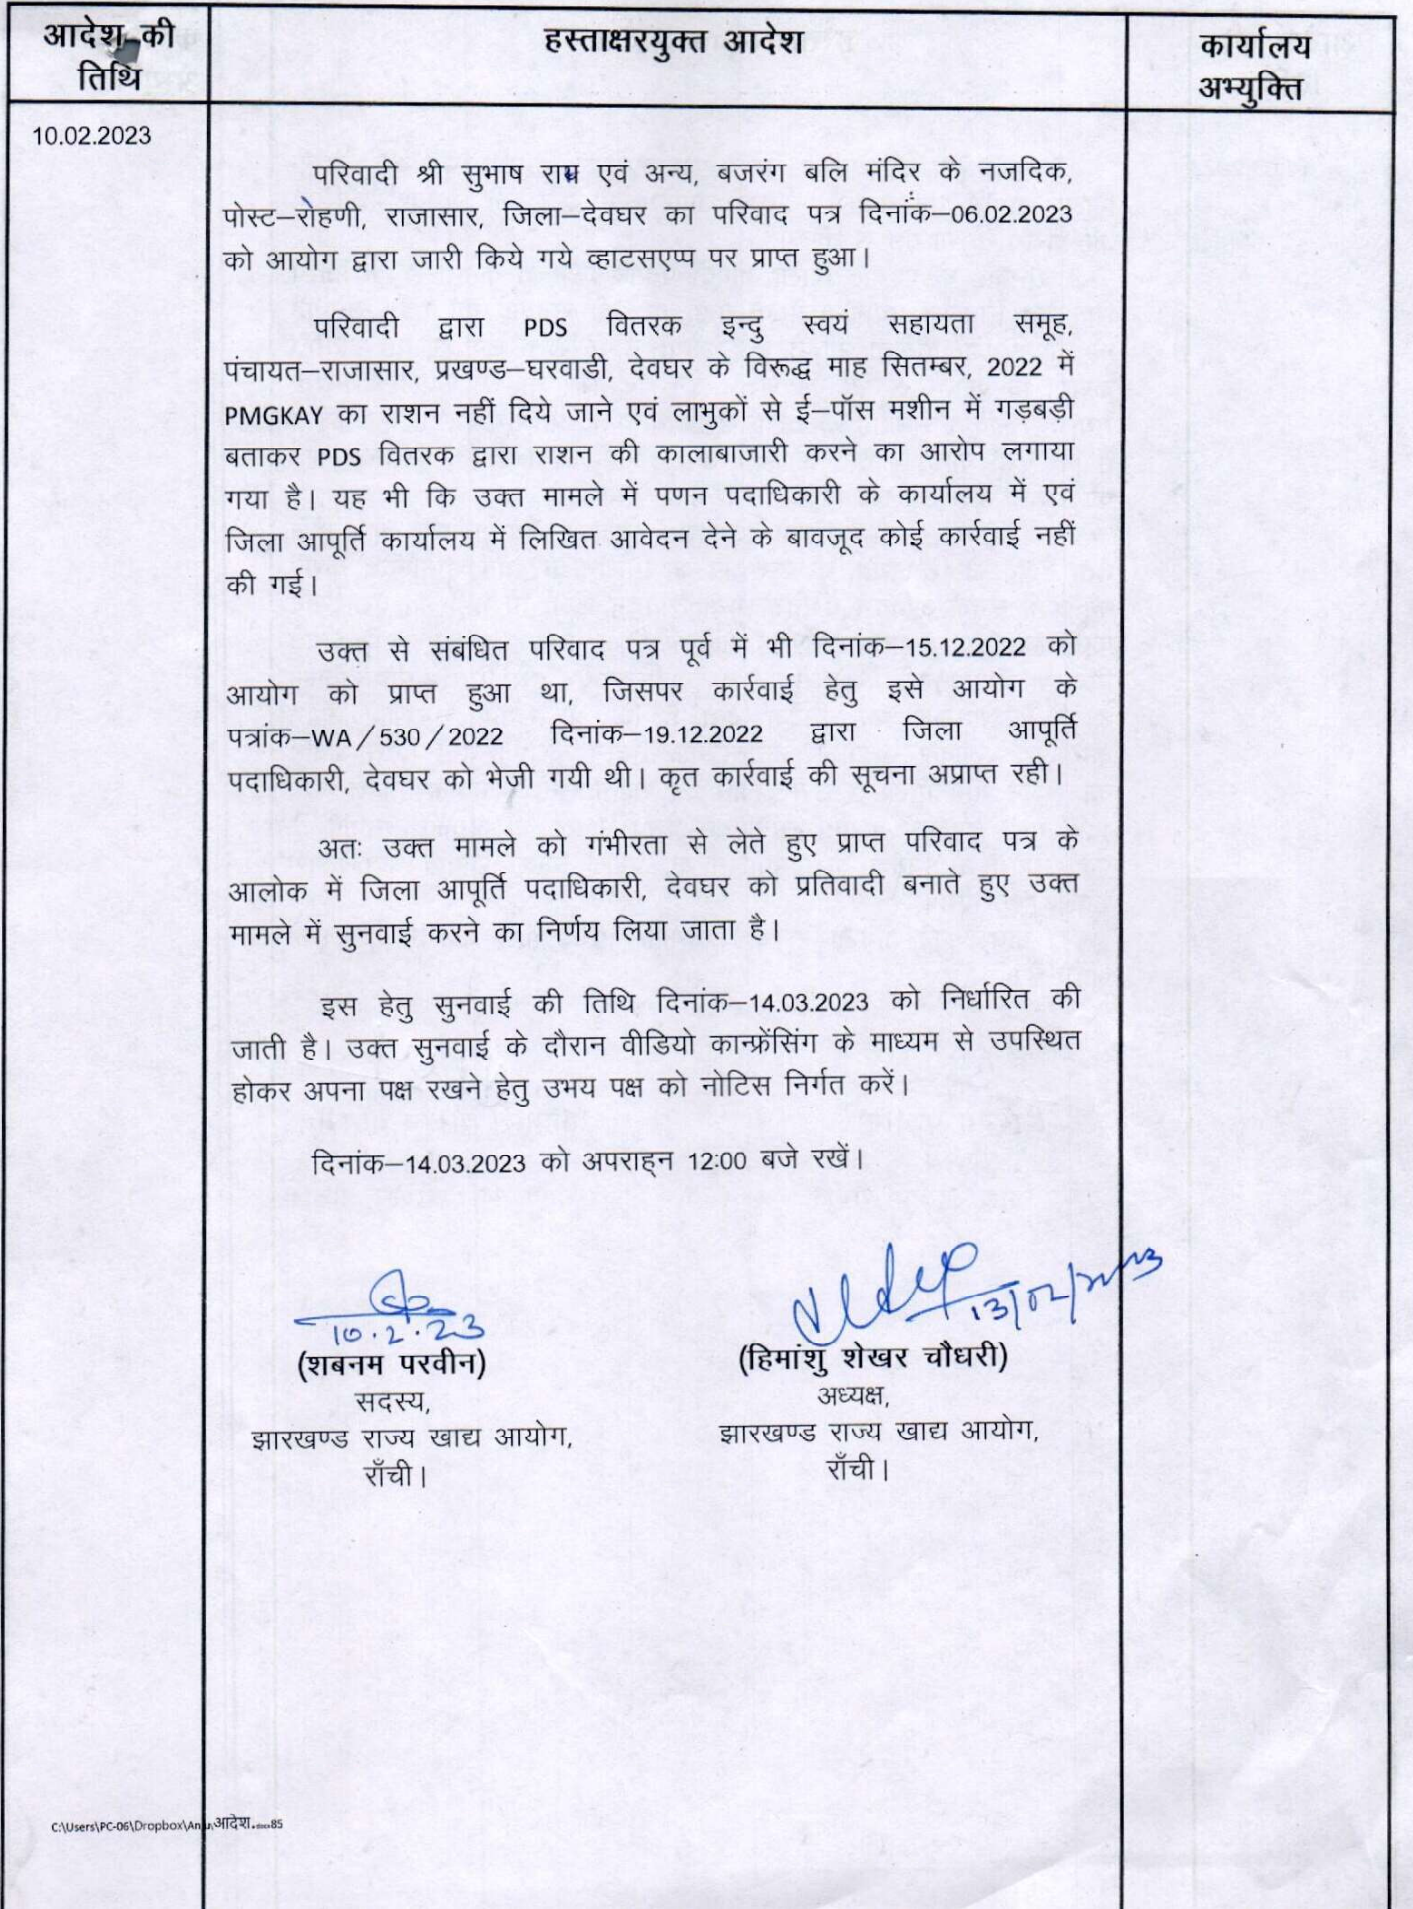 आदेश की
तिथि
हस्ताक्षरयुक्त आदेश
कार्यालय
अभ्युक्ति
10.02.2023
परिवादी श्री सुभाष राय एवं अन्य, बजरंग बलि मंदिर के नजदिक,
पोस्ट–रोहणी, राजासार, जिला–देवघर का परिवाद पत्र दिनांक–06.02.2023
को आयोग द्वारा जारी किये गये व्हाटसएप्प पर प्राप्त हुआ।
परिवादी द्वारा PDS वितरक इन्दु स्वयं सहायता समूह,
पंचायत–राजासार, प्रखण्ड–घरवाडी, देवघर के विरूद्ध माह सितम्बर, 2022 में
PMGKAY का राशन नहीं दिये जाने एवं लाभुकों से ई–पॉस मशीन में गड़बड़ी
बताकर PDS वितरक द्वारा राशन की कालाबाजारी करने का आरोप लगाया
गया है। यह भी कि उक्त मामले में पणन पदाधिकारी के कार्यालय में एवं
जिला आपूर्ति कार्यालय में लिखित आवेदन देने के बावजूद कोई कार्रवाई नहीं
की गई।
उक्त से संबंधित परिवाद पत्र पूर्व में भी दिनांक–15.12.2022 को
आयोग को प्राप्त हुआ था, जिसपर कार्रवाई हेतु इसे आयोग के
पत्रांक–WA/530/2022 दिनांक–19.12.2022 द्वारा जिला आपूर्ति
पदाधिकारी, देवघर को भेजी गयी थी। कृत कार्रवाई की सूचना अप्राप्त रही।
अतः उक्त मामले को गंभीरता से लेते हुए प्राप्त परिवाद पत्र के
आलोक में जिला आपूर्ति पदाधिकारी, देवघर को प्रतिवादी बनाते हुए उक्त
मामले में सुनवाई करने का निर्णय लिया जाता है।
इस हेतु सुनवाई की तिथि दिनांक–14.03.2023 को निर्धारित की
जाती है। उक्त सुनवाई के दौरान वीडियो कान्फ्रेंसिंग के माध्यम से उपस्थित
होकर अपना पक्ष रखने हेतु उभय पक्ष को नोटिस निर्गत करें।
दिनांक–14.03.2023 को अपराह्न 12:00 बजे रखें।
10.2.23
13/02/2023
(शबनम परवीन)
सदस्य,
झारखण्ड राज्य खाद्य आयोग,
राँची।
(हिमांशु शेखर चौधरी)
अध्यक्ष,
झारखण्ड राज्य खाद्य आयोग,
राँची।
C:\Users\PC-06\Dropbox\Anju\आदेश.docx85